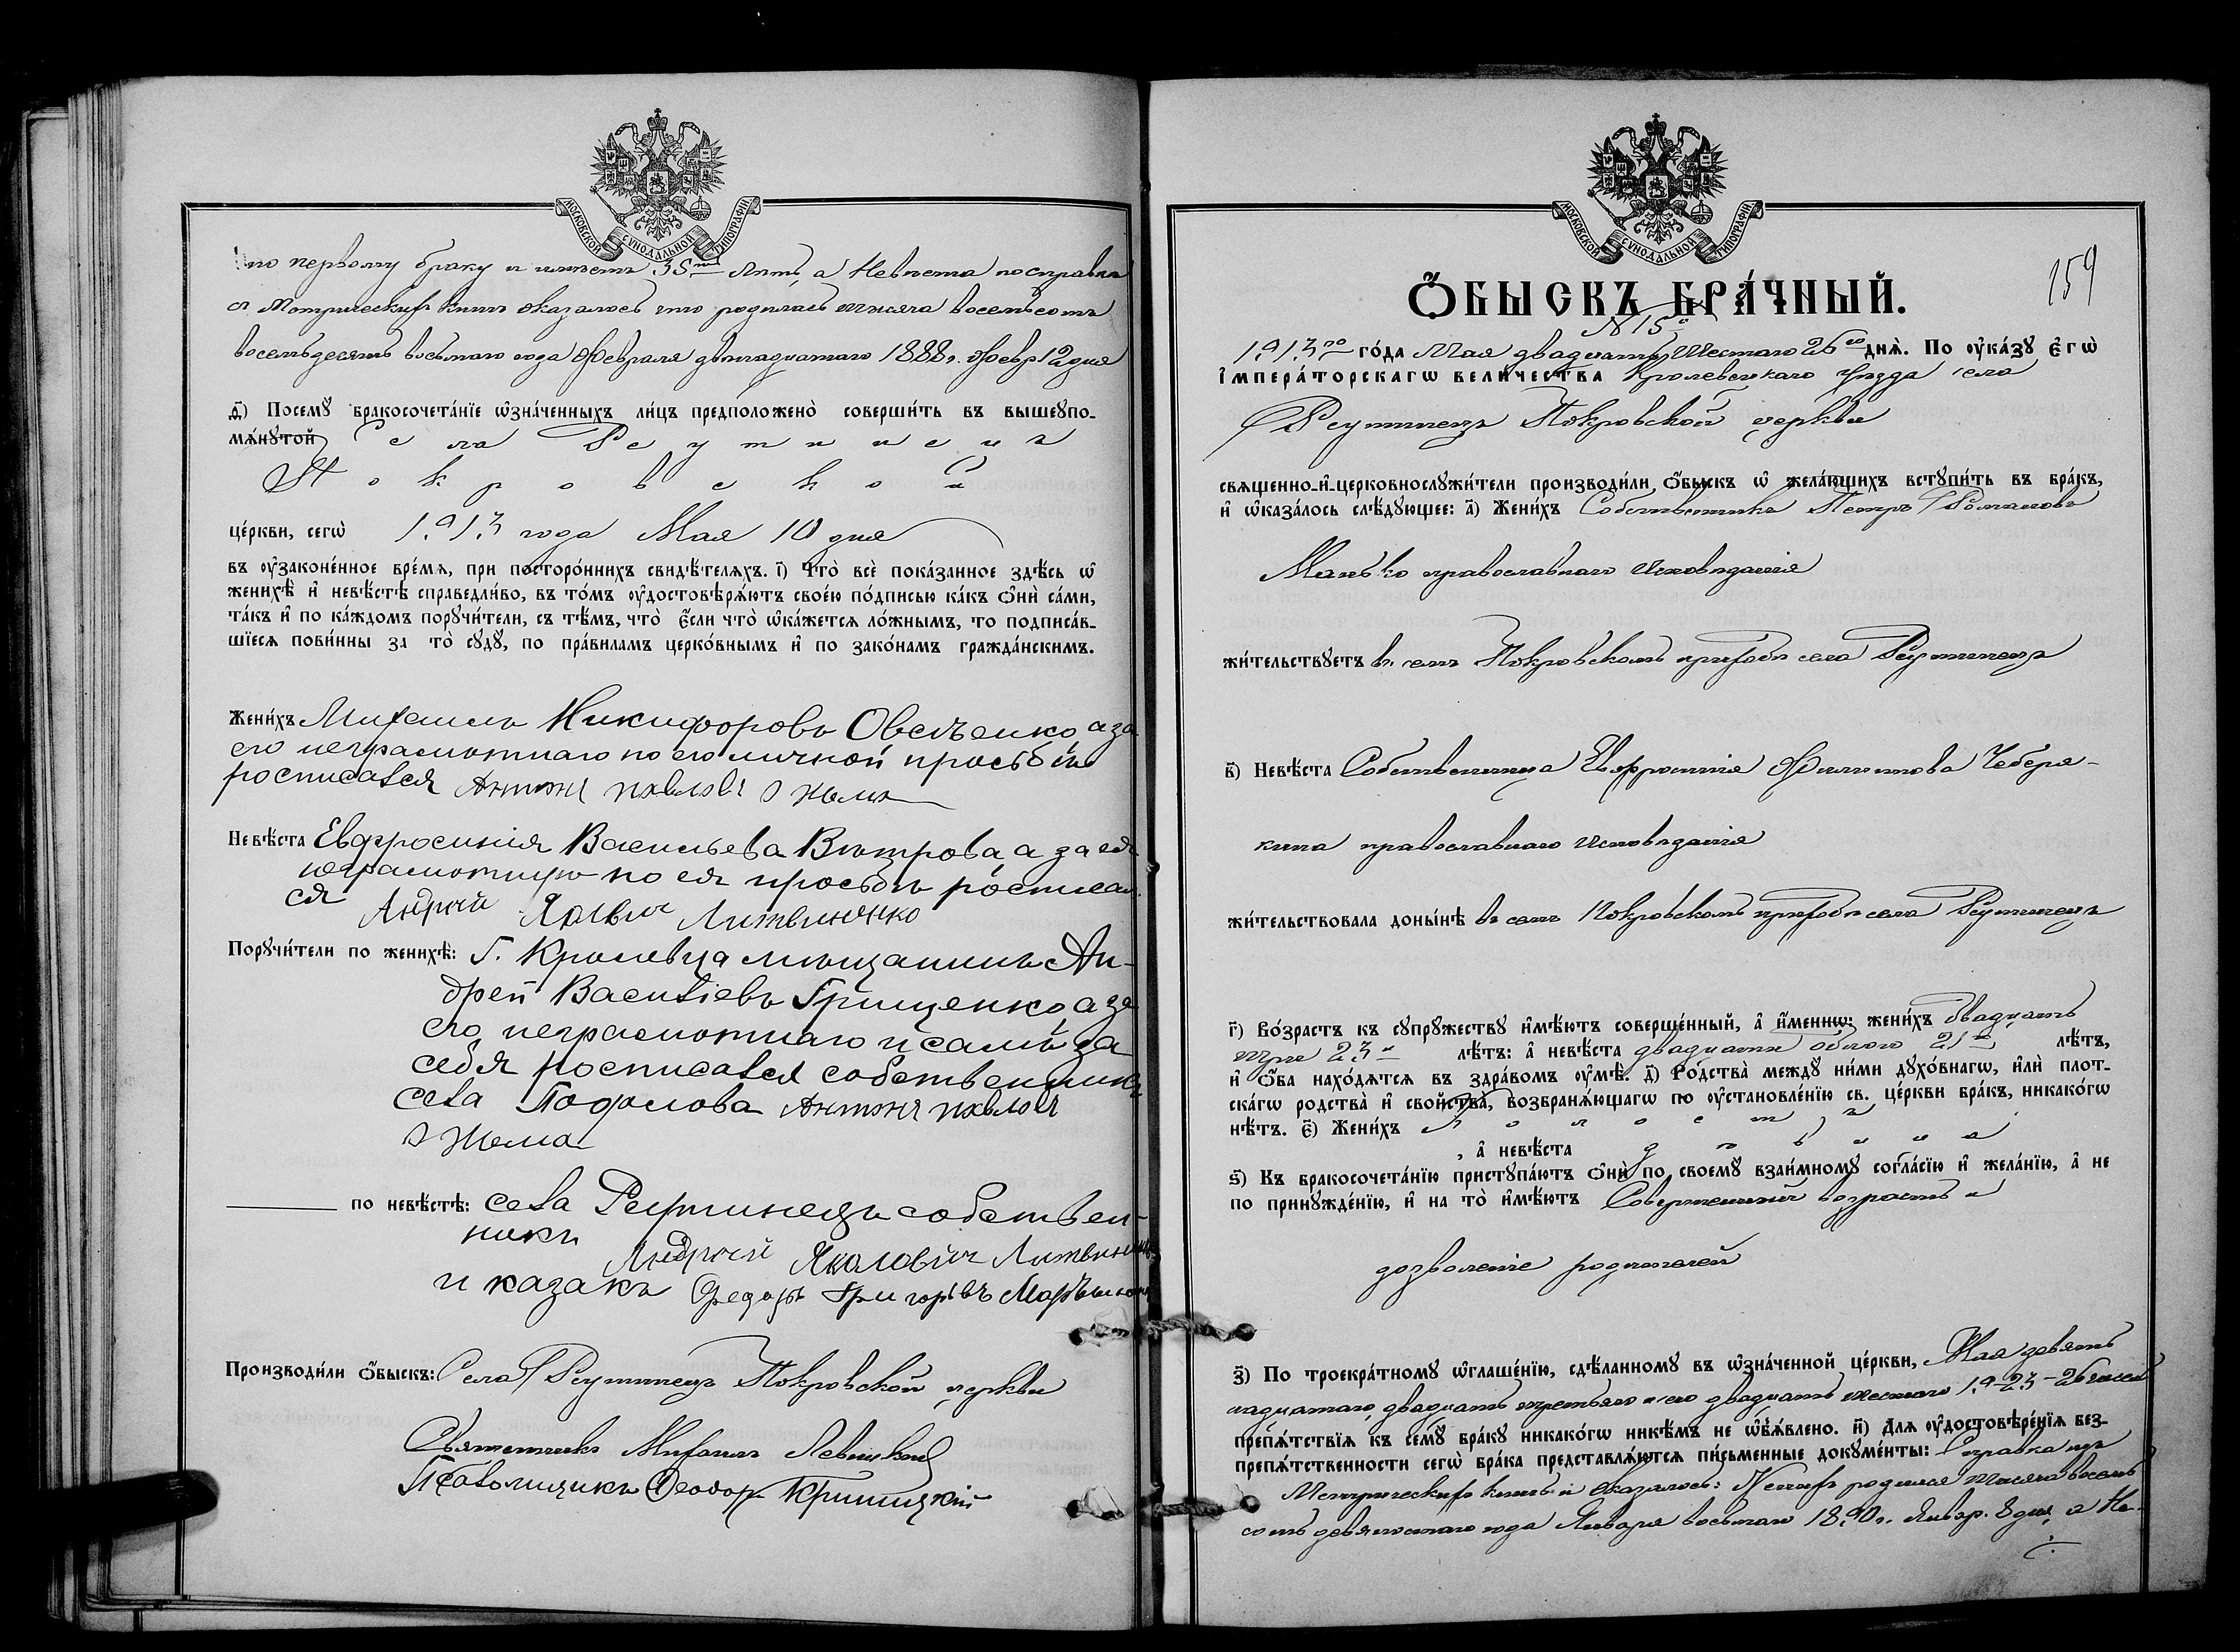 МОСКОВСКОЙ СУНОДАЛЬНОЙ ТИПОГРАФІИ
по первому браку и имѣетъ 35ть лѣтъ, а Невѣста по справкѣ
съ Метрическихъ книгъ оказалось что родилась тысяча восемьсотъ
восемьдесятъ восьмаго года Февраля двѣнадцатаго 1888 г. Февр 12 дня
ѳ҃) Посемꙋ̀ бракосочета́нїе ѡ҆зна́ченныхъ ли́цъ предположено̀ соверши́ть въ вышеꙋпо-
мѧ́нꙋтой Села Реутинецъ
Покровской
це́ркви, сегѡ̀ 1913 года Мая 10 дня
въ ᲂу҆законе́нное вре́мѧ, при посторо́ннихъ свидѣ́телѧхъ. і҃) Что̀ всѐ пока́занное здѣ́сь ѡ҆
женихѣ̀ и҆ невѣ́стѣ справедли́во, въ то́мъ ᲂу҆достовѣрѧ́ютъ свое́ю по́дписью ка́къ ѻ҆нѝ са́ми,
та́къ и҆ по ка́ждомъ порꙋчи́тели, съ тѣ́мъ, что̀ є҆́сли что̀ ѡ҆ка́жетсѧ ло́жнымъ, то подписа́в-
шїесѧ пови́нны за то̀ сꙋдꙋ̀, по пра́виламъ церко́внымъ и҆ по зако́намъ гражда́нскимъ.
Жени́хъ Михаилъ Никифоровъ Овсѣенко, а за
его неграмотнаго по его личной просьбѣ
росписался Антонъ Павловъ
Невѣ́ста Евфросинія Васильева Вѣтрова, а за ея
неграмотную по ея просьбѣ росписал
ся Андрей Яковлев Литвиненко
Порꙋчи́тели по женихѣ̀: Г. Кролевца мѣщанинъ Ан-
дрей Василіевъ Грищенко, а за
его неграмотнаго и самъ за
себя росписался собственникъ
села Подолова Антонъ Павловъ
по невѣ́стѣ: села Реутинецъ собствен-
ники Андрей Яковлевич Литвиненко
и казакъ Федоръ Григорьевъ
Производи́ли ѻ҆́быскъ: Села Реутинецъ Покровской церкви
Священникъ Михаилъ Левицкій
Псаломщикъ Ѳеодоръ Криницкій
МОСКОВСКОЙ СУНОДАЛЬНОЙ ТИПОГРАФІИ
159
Ѻ҆́БЫСКЪ БРА́ЧНЫЙ.
№ 15й
1913го го́да Мая двадцать шестаго 26го днѧ̀. По ᲂу҆ка́зꙋ Є҆гѡ̀
І҆мпера́торскагѡ вели́чества Кролевецкаго Уѣзда села
Реутинецъ Покровской церкви
свѧщенно-и҆-церковнослꙋжи́тели производи́ли ѻ҆́быскъ ѡ҆ жела́ющихъ встꙋпи́ть въ бра́къ,
и҆ ѡ҆каза́лось слѣ́дꙋющее: а҃) Жени́хъ Собственникъ Петръ Романовъ
Манько православнаго исповѣданія
жи́тельствꙋетъ въ семъ Покровскомъ приходѣ села Реутинецъ
в҃) Невѣ́ста Собственница Евфросинія Филиппова Чеберя-
кина православнаго исповѣданія
жи́тельствовала доны́нѣ въ семъ Покровскомъ приходѣ села Реутинецъ
г҃) Во́зрастъ къ сꙋпрꙋ́жествꙋ и҆мѣ́ютъ соверше́нный, а҆ и҆́меннѡ: жени́хъ двадцать
три 23 лѣ́тъ: а҆ невѣ́ста двадцати одного 21го лѣ́тъ,
и҆ ѻ҆́ба нахо́дѧтсѧ въ здра́вомъ ᲂу҆мѣ̀. д҃) Ро́дства̀ междꙋ̀ ни́ми дꙋхо́внагѡ, и҆лѝ плот-
ска́гѡ родства̀ и҆ свойства̀, возбранѧ́ющагѡ по ᲂу҆становле́нїю св. це́ркви бра́къ, никако́гѡ
нѣ́тъ. є҃) Жени́хъ холостъ,
, а҆ невѣ́ста дѣвица
ѕ҃) Къ бракосочета́нїю пристꙋпа́ютъ ѻ҆нѝ по своемꙋ̀ взаи́мномꙋ согла́сїю и҆ жела́нїю, а҆ не
по принꙋжде́нїю, и҆ на то̀ и҆мѣ́ютъ Совершенный возрастъ и
дозволеніе родителей
з҃) По троекра́тномꙋ ѡ҆глаше́нїю, сдѣ́ланномꙋ въ ѡ҆зна́ченной це́ркви, Мая девят
надцатаго, двадцать третьяго и его двадцать шестаго 19-23-26 числ
препѧ́тствїѧ къ семꙋ̀ бра́кꙋ никако́гѡ никѣ́мъ не ѡ҆б̾ѧ́влено. и҃) Длѧ ᲂу҆достовѣре́нїѧ без-
препѧ́тственности сегѡ̀ бра́ка представлѧ́ютсѧ пи́сьменные докꙋме́нты: Справка изъ
Метрическихъ книгъ и оказалось: Женихъ родился тысяча восемь
сотъ девяностаго года Января восьмаго 1890 г. Январ. 8 дня, а Не-